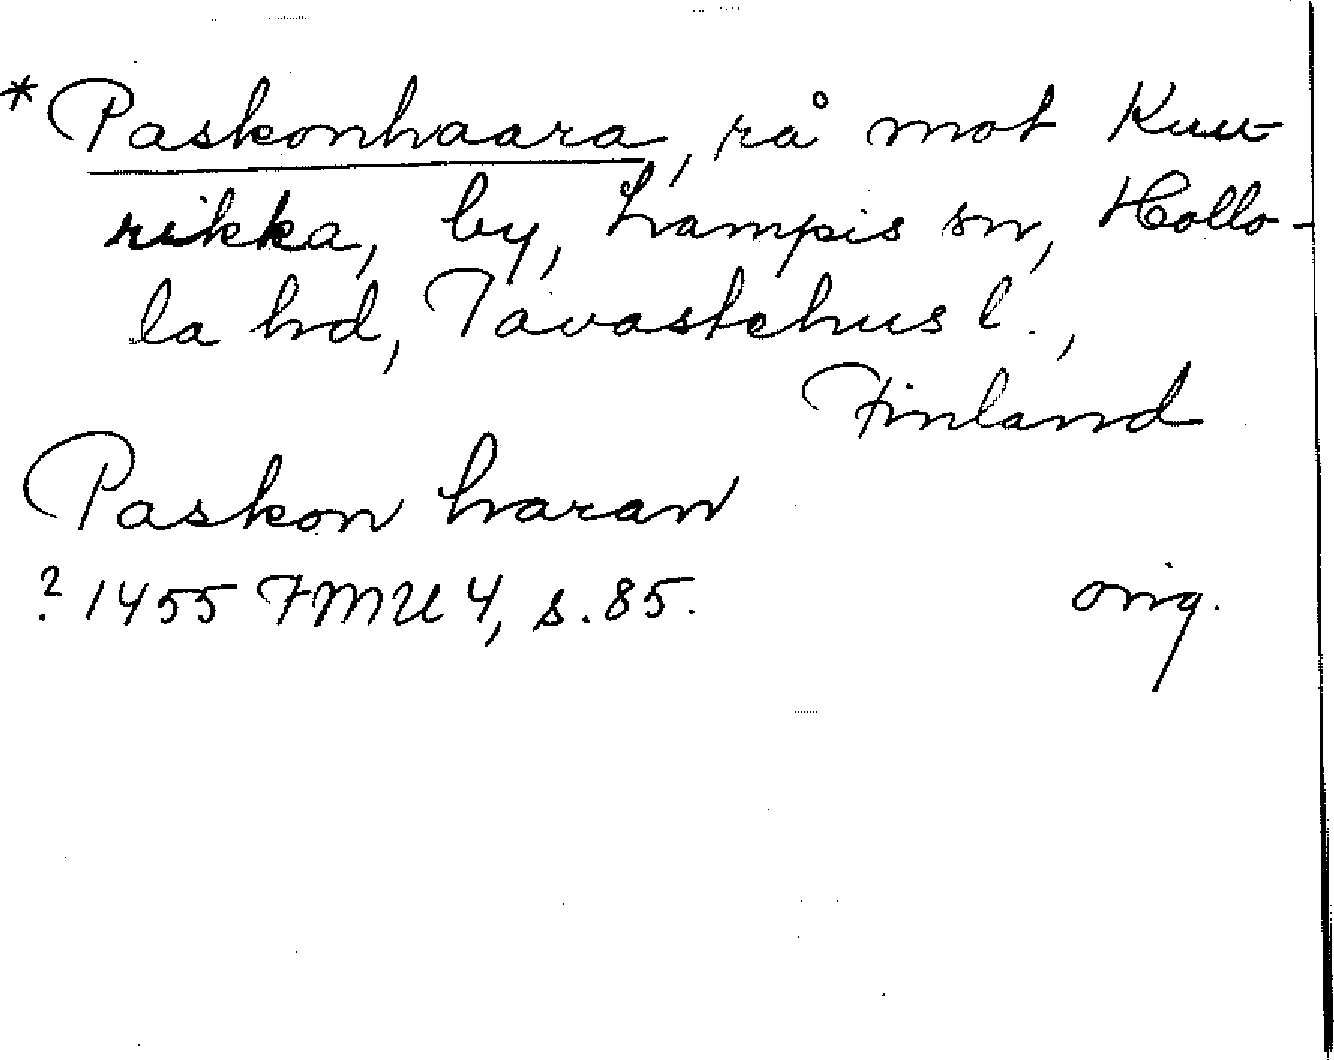 *Paskonhaara, rå mot Kuu-
rikka, by, Lampis sn, Hollo-
la hd, Tavastehus l.,
Finland
Paskon haran
? 1455 FMU 4, s. 85. orig.